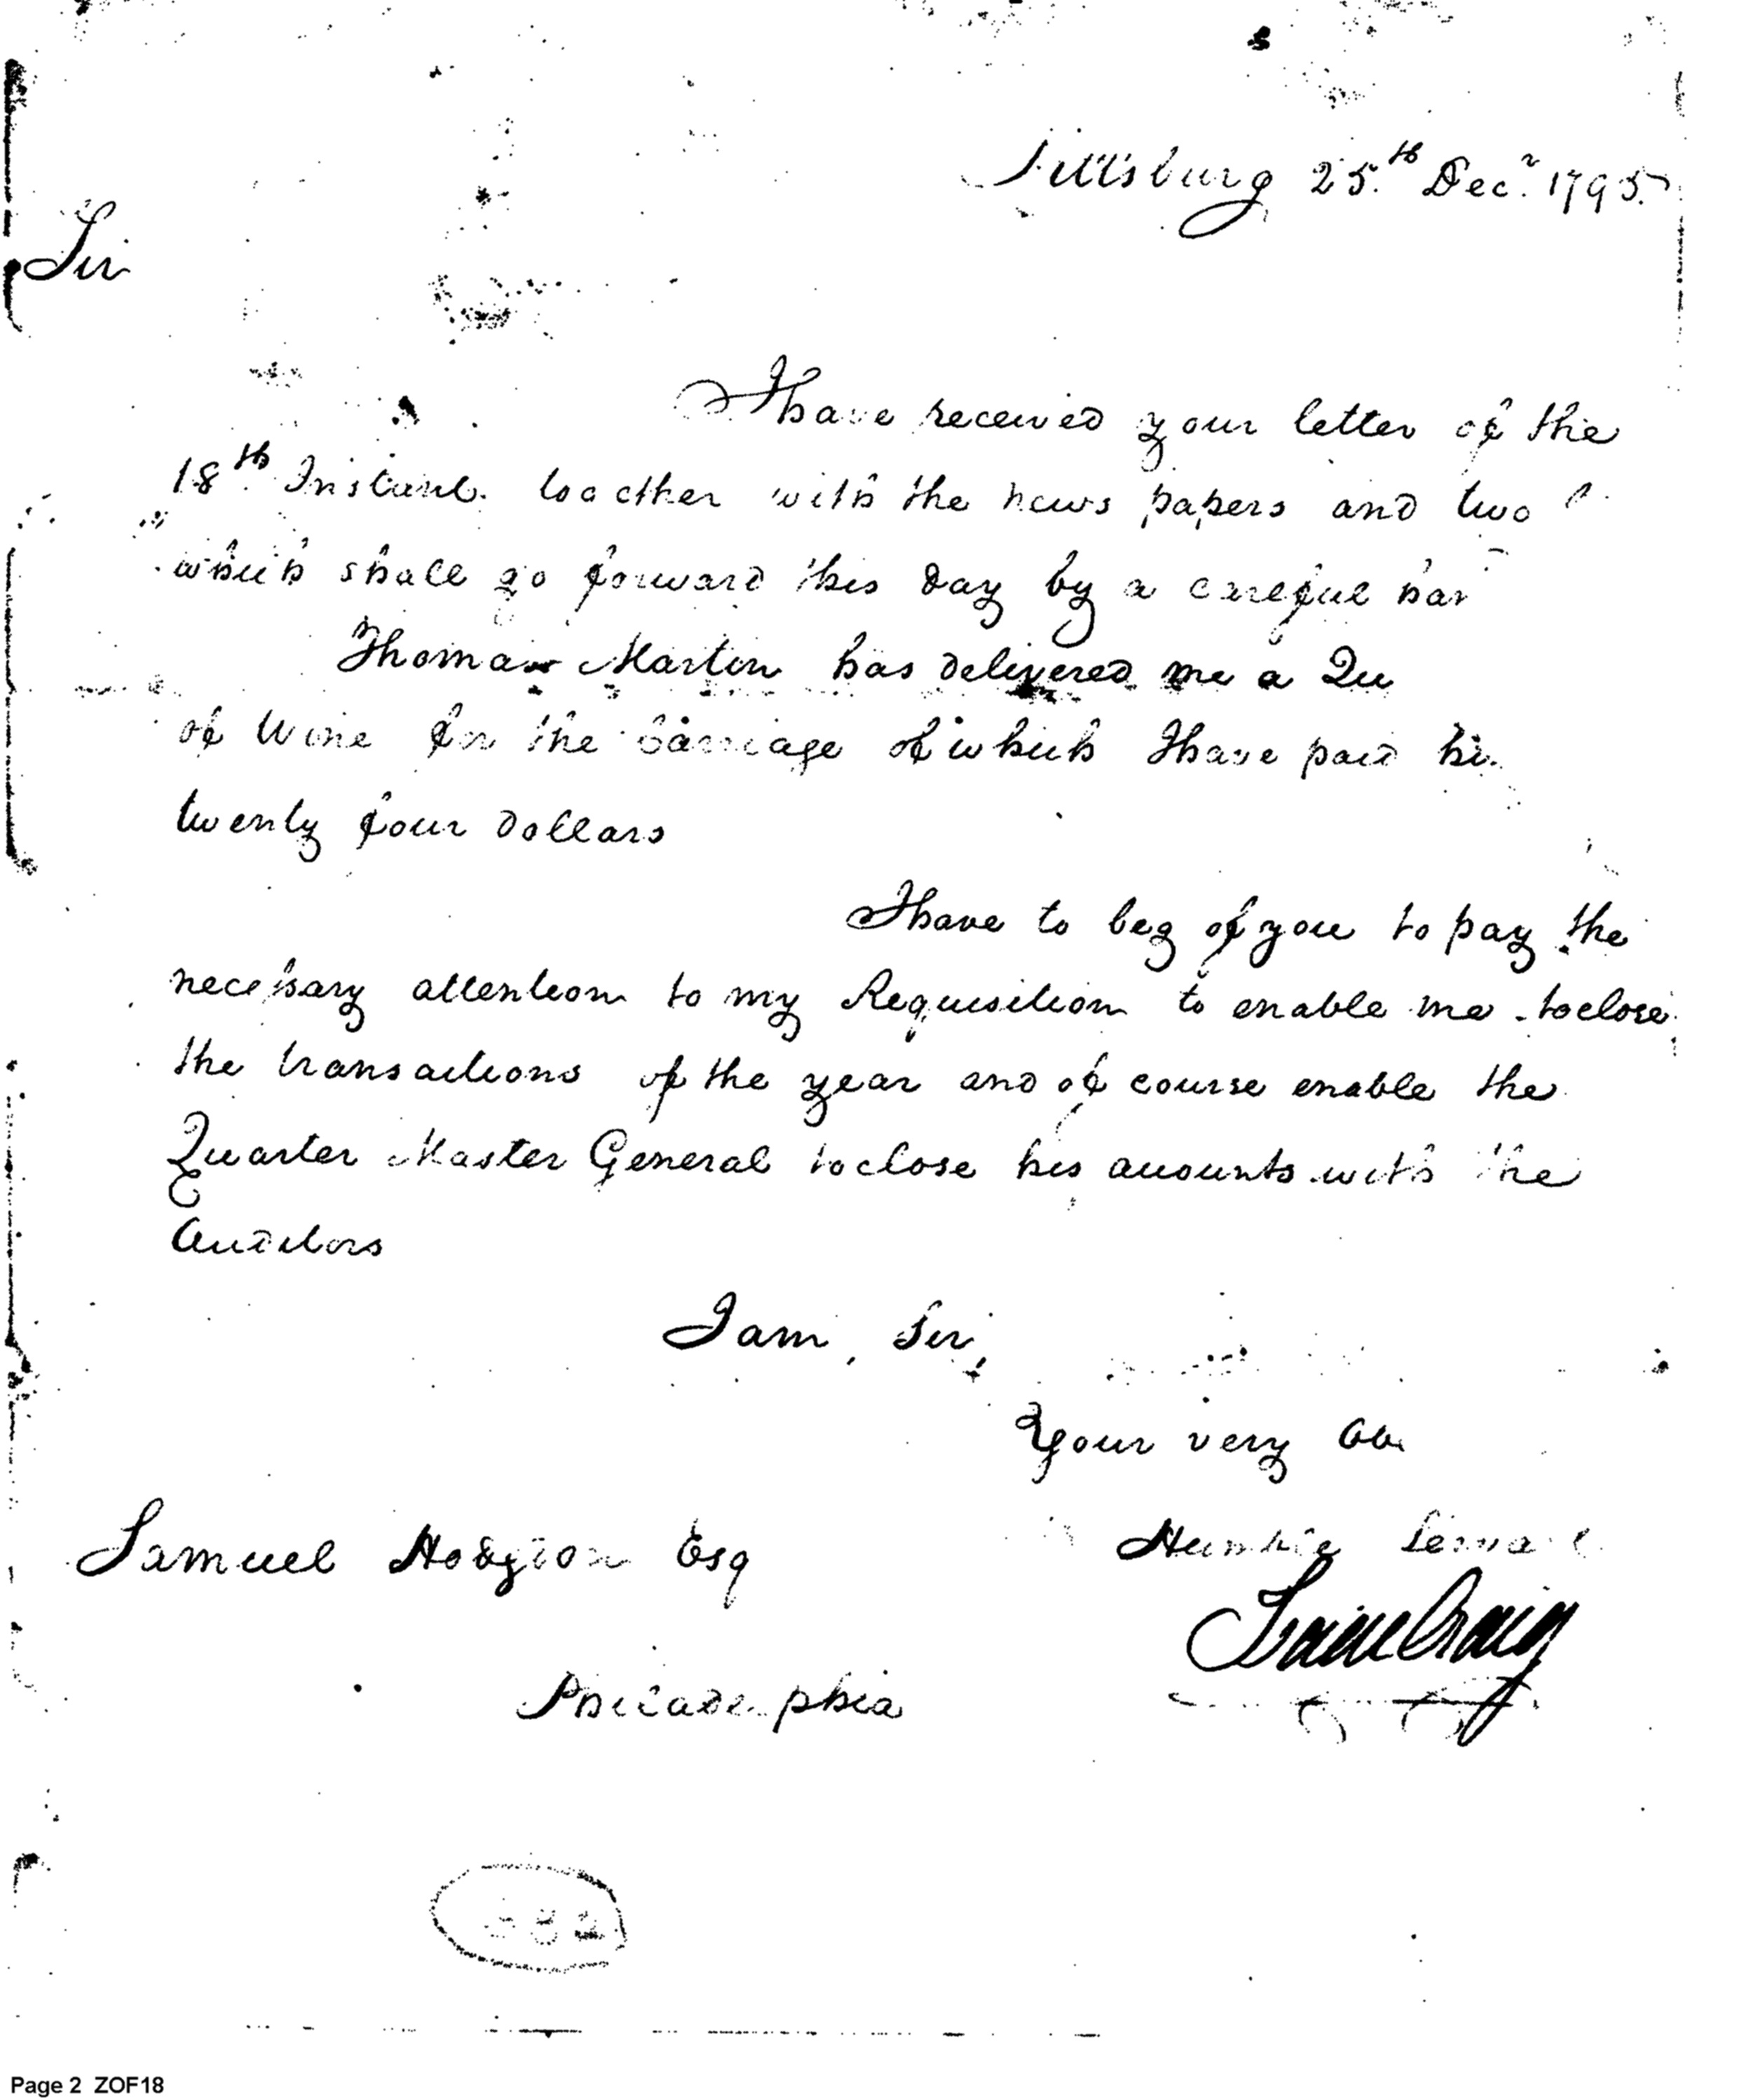 Pittsburg 25.th Decr. 1795.
Sir
I have received your letter of the
18th. Instant. together with the news papers and two
which shall go forward this day by a careful
Thomas Martin has delivered me a
of Wine for the Carriage of which I have paid
twenty four dollars
I have to beg of you to pay the
necessary attention to my Requisition to enable me to close
the transactions of the year and of course enable the
Quarter Master General to close his accounts with the
Auditors
I am, Sir,
Your very
Samuel Hodgson Esq
Humble Servant
Isaac Craig
Philadelphia
Page 2 ZOF18